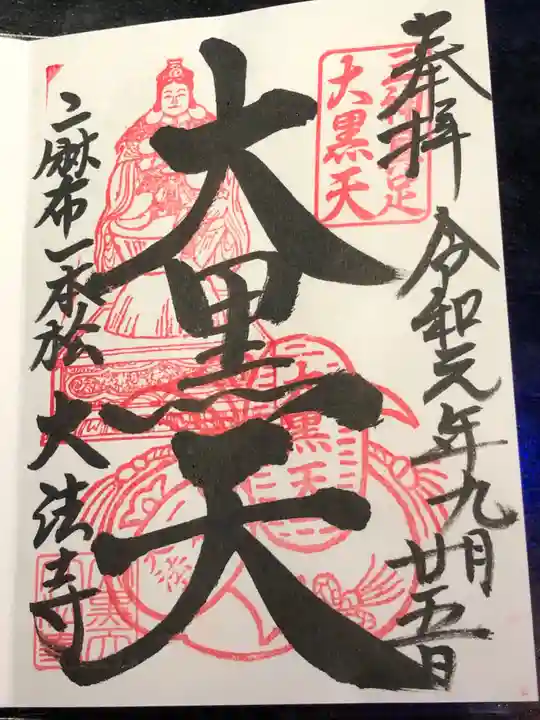 奉拝 令和元年九月廿五日
大黒天
大黒天
大黒天
麻布一本松 大法寺